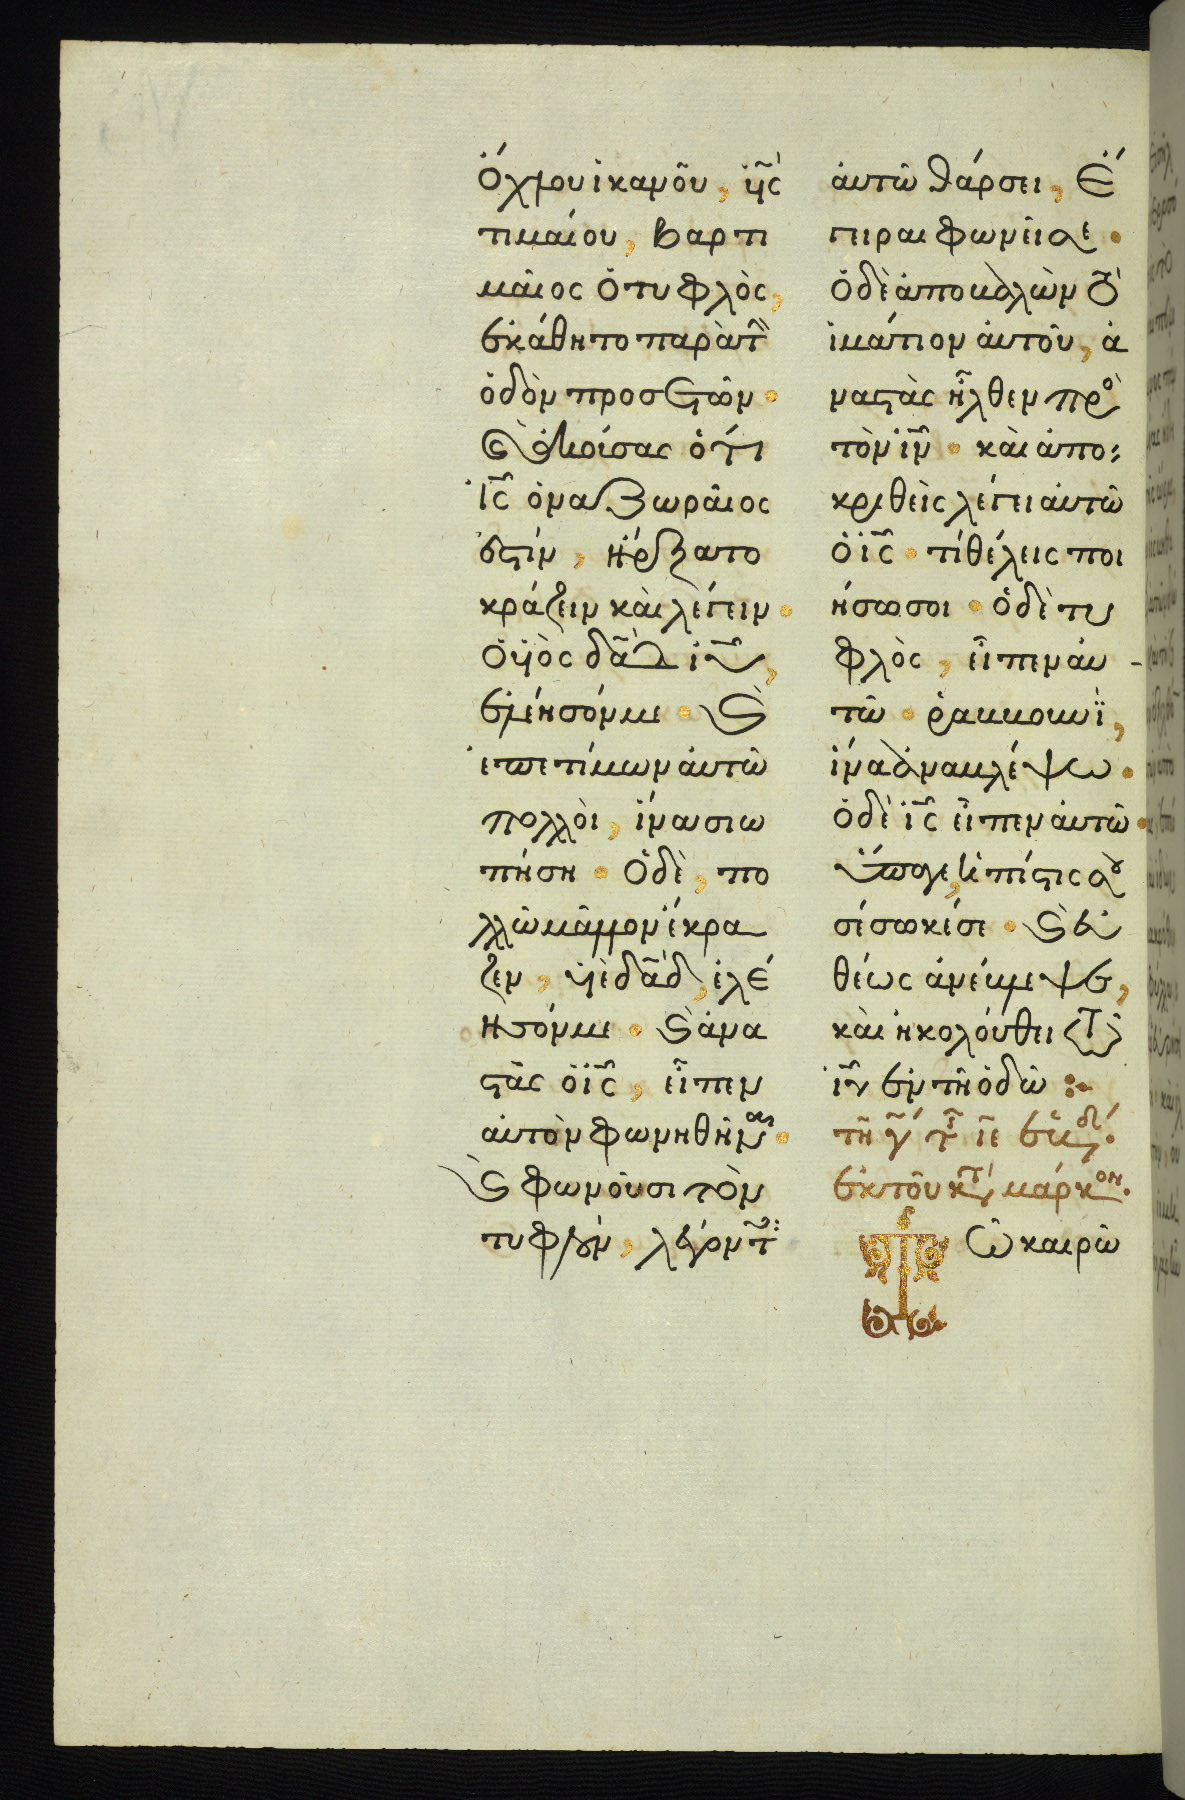 ὄχλου ἱκανοῦ, ὑϊὸς
τιμαίου, βαρτι
μαῖος ὁ τυφλὸς,
ἐκάθητο παρὰ τὴν
ὁδὸν προσαιτῶν.
καὶ ἀκούσας ὅτι
ἰς̅ ὁ ναζωραῖος
ἐστίν, ἤρξατο
κράζειν καὶ λέγειν.
ὁ ὑϊὸς δα̅δ ἰυ̅,
ἐλέησόν με. καὶ
ἐπετίμων αὐτῶ
πολλοὶ, ἵνα σιω
πήση. ὁ δὲ, πο
λλῶ μᾶλλον ἔκρα
ζεν, ὑϊὲ δα̅δ, ἐλέ
ησόν με. καὶ ἀνα
στὰς ὁ ἰς̅, εἶπεν
αὐτὸν φωνηθῆναι.
καὶ φωνοῦσι τὸν
τυφλόν, λέγοντες
αὐτῶ θάρσει, ἔ
γειραι φωνεῖ σε.
ὁ δὲ ἀποβαλὼν τὸ
ἱμάτιον αὐτοῦ, ἀ
ναστὰς ἦλθεν πρὸς
τὸν ἰν̅. καὶ ἀπο
κριθεὶς λέγει αὐτῶ
ὁ ἰς̅. τί θέλεις ποι
ήσω σοι. ὁ δὲ τυ
φλὸς, εἶπεν αὐ
τῶ. ῥαββουνί,
ἵνα ἀναβλέψω.
ὁ δὲ ἰς̅ εἶπεν αὐτῶ.
ὕπαγε, ἡ πίστις σου
σέσωκέ σε. καὶ εὐ
θέως ἀνέβλεψε,
καὶ ἠκολούθει τῶ
ἰυ̅ ἐν τῆ ὁδῶ :~
τῆ γ τῆς ιε ἑβδ.
ἐκ τοῦ κατὰ μάρκον.
Τῶ καιρῶ